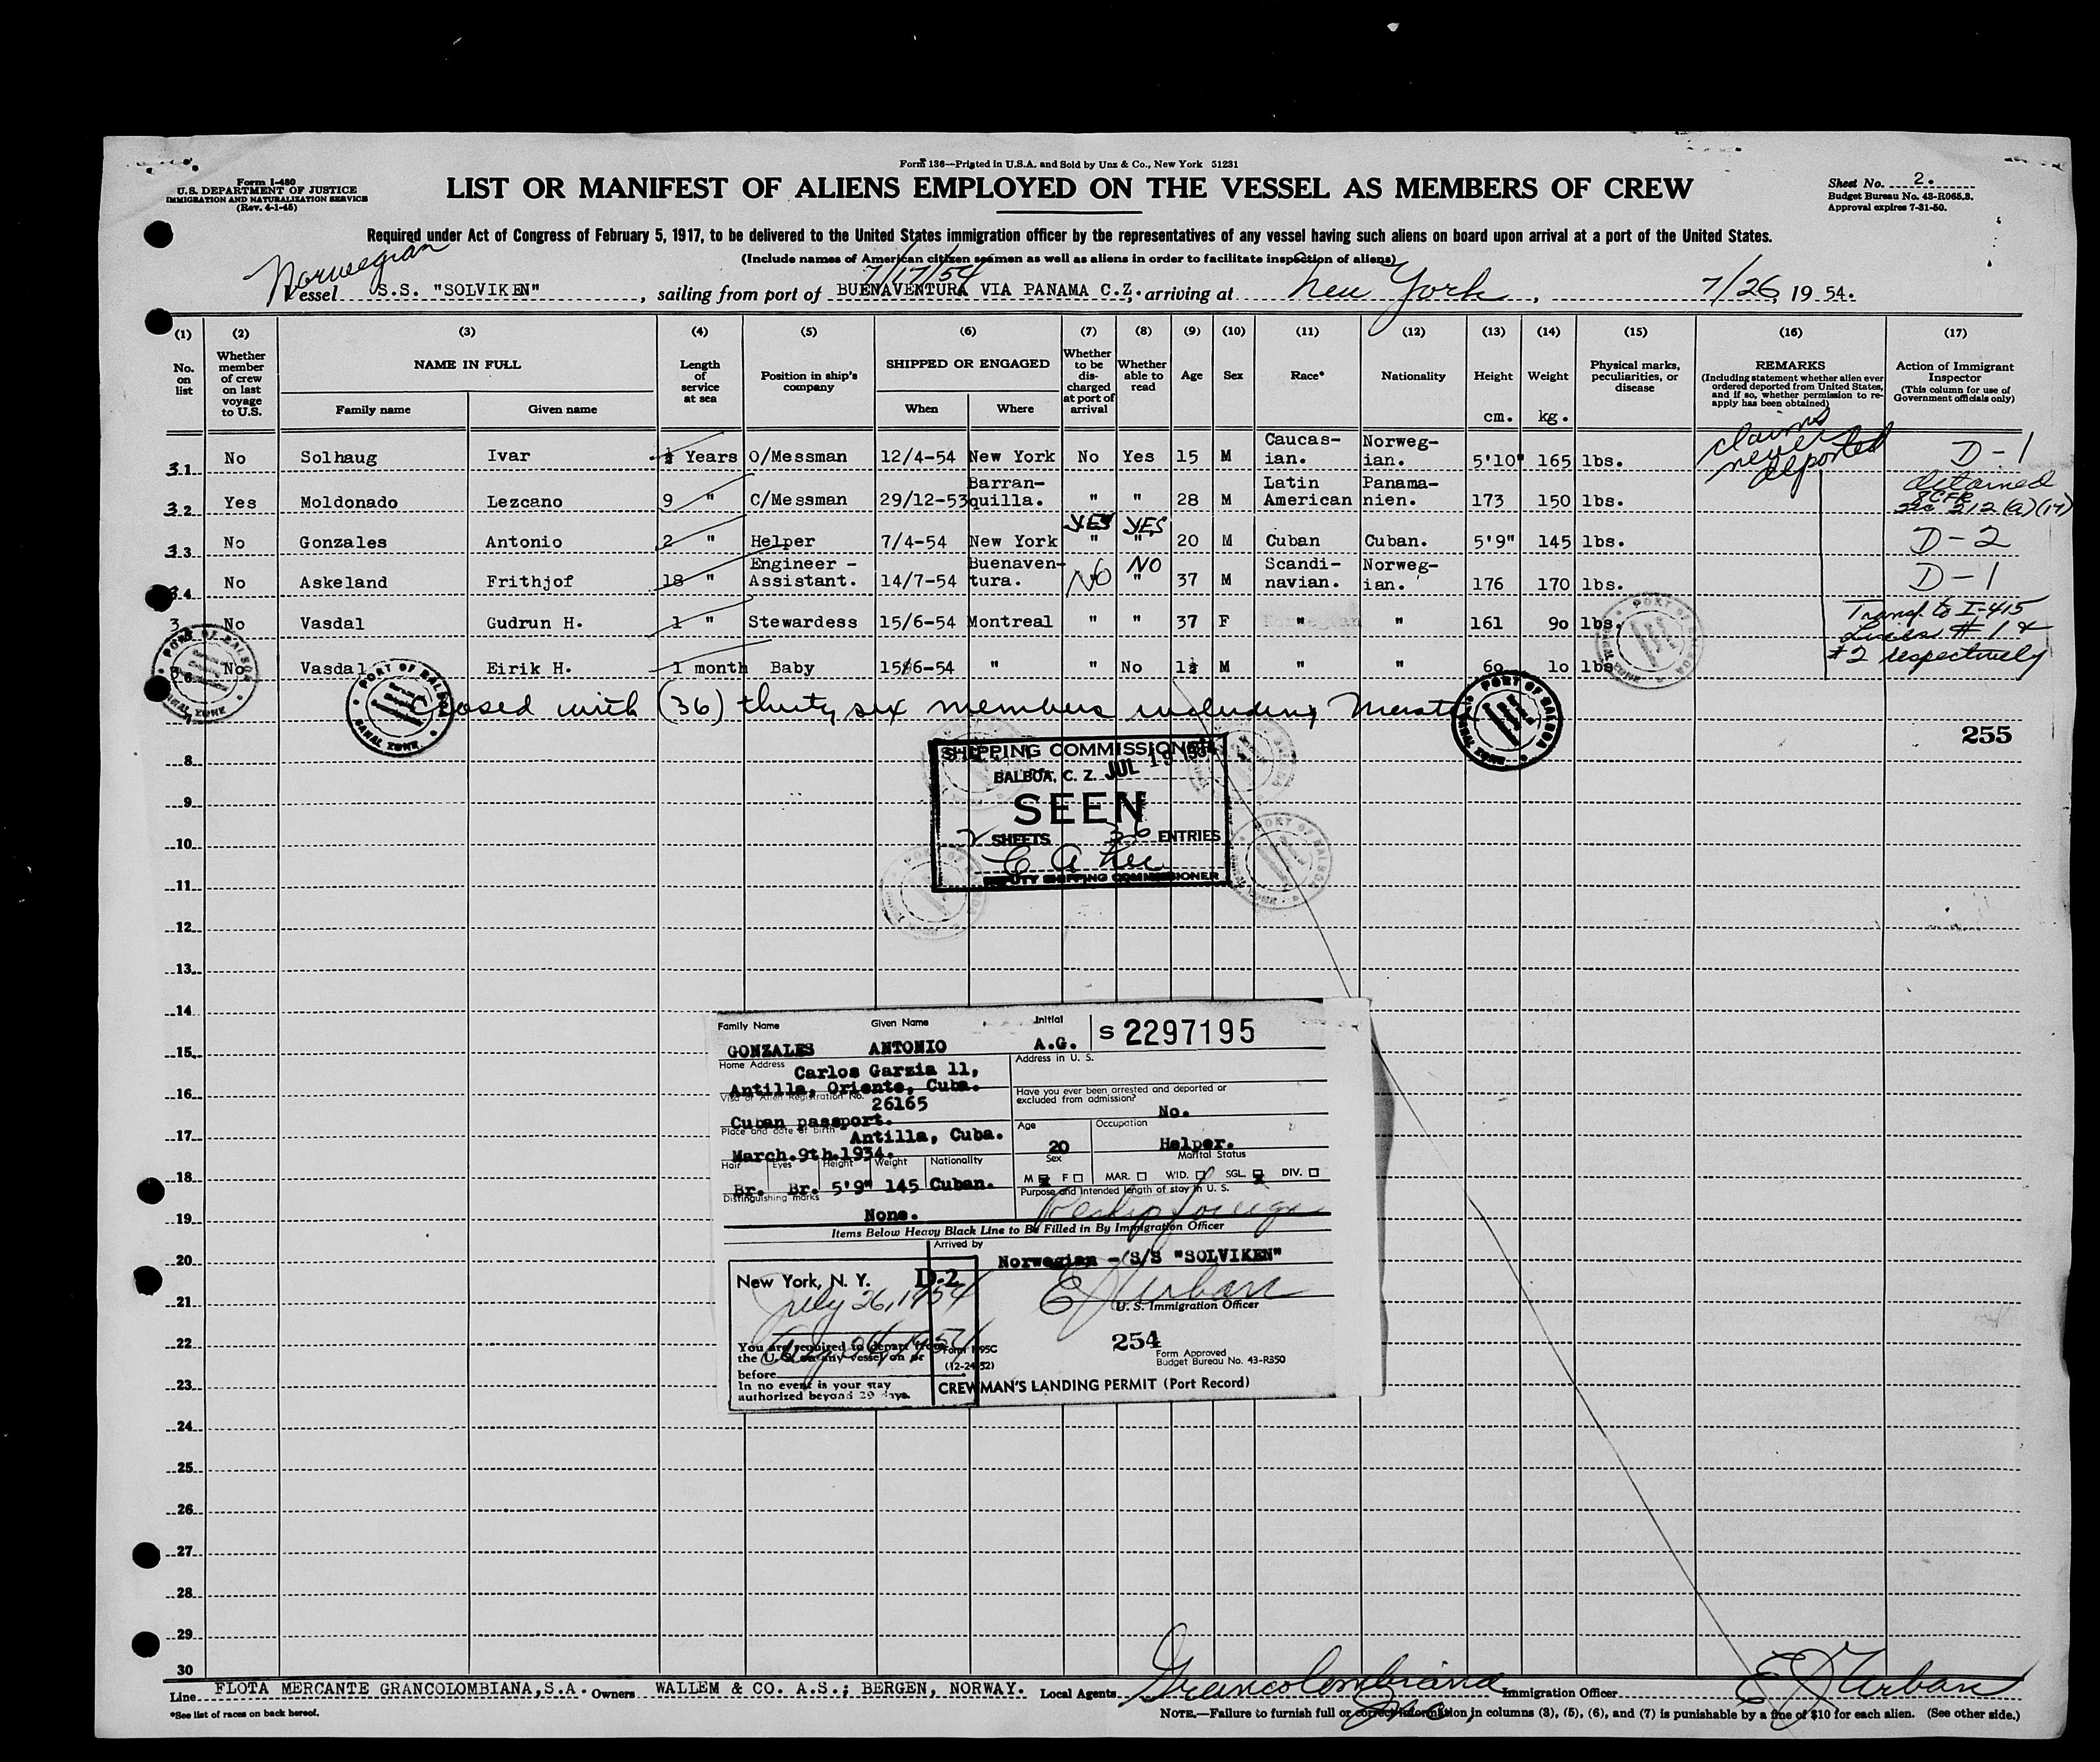 Form 136—Printed in U.S.A. and Sold by Unz & Co., New York 51231
Form I-480
U.S. DEPARTMENT OF JUSTICE
IMMIGRATION AND NATURALIZATION SERVICE
(Rev. 4-1-45)
LIST OR MANIFEST OF ALIENS EMPLOYED ON THE VESSEL AS MEMBERS OF CREW
Sheet No. 2.
Budget Bureau No. 43-R065.3.
Approval expires 7-31-50.
Required under Act of Congress of February 5, 1917, to be delivered to the United States immigration officer by the representatives of any vessel having such aliens on board upon arrival at a port of the United States.
(Include names of American citizen seamen as well as aliens in order to facilitate inspection of aliens)
Norwegian
7/17/54
Vessel S.S. "SOLVIKEN", sailing from port of BUENAVENTURA VIA PANAMA C.Z. arriving at New York, 7/26, 19 54.
(1) (2) (3) (4) (5) (6) (7) (8) (9) (10) (11) (12) (13) (14) (15) (16) (17)
No. on list
Whether member of crew on last voyage to U.S.
NAME IN FULL
Family name
Given name
Length of service at sea
Position in ship's company
SHIPPED OR ENGAGED
When
Where
Whether to be discharged at port of arrival
Whether able to read
Age
Sex
Race*
Nationality
Height
cm.
Weight
kg.
Physical marks, peculiarities, or disease
REMARKS
(Including statement whether alien ever ordered deported from United States, and if so, whether permission to re-apply has been obtained)
Action of Immigrant Inspector
(This column for use of Government officials only)
31 No Solhaug Ivar ½ Years O/Messman 12/4-54 New York No Yes 15 M Caucas-ian. Norweg-ian. 5'10" 165 lbs. claims never deported D-1
32 Yes Moldonado Lezcano 9 " C/Messman 29/12-53 Barran-quilla. " " 28 M Latin American Panama-nien. 173 150 lbs. detained 8 CFR sec 212 (a)(17)
33 No Gonzales Antonio 2 " Helper 7/4-54 New York YES " YES " 20 M Cuban Cuban. 5'9" 145 lbs. D-2
34 No Askeland Frithjof 18 " Engineer - Assistant. 14/7-54 Buenaven-tura. NO " NO " 37 M Scandi-navian. Norweg-ian. 176 170 lbs. D-1
3 No Vasdal Gudrun H. 1 " Stewardess 15/6-54 Montreal " " 37 F " " 161 90 lbs. Transf. to I-415
Lines #1 &
#2 respectively
36 No Vasdal Eirik H. 1 month Baby 15/6-54 " " No 1½ M " " 60 10 lbs
Closed with (36) thirty six members including Master
PORT OF BALBOA
CANAL ZONE
255
SHIPPING COMMISSIONER
BALBOA, C. Z. JUL 19 1954
SEEN
2 SHEETS 36 ENTRIES
DEPUTY SHIPPING COMMISSIONER
8
9
10
11
12
13
14
15
16
17
18
19
20
21
22
23
24
25
26
27
28
29
30
Family Name Given Name Initial
GONZALES ANTONIO A.G. S 2297195
Home Address Carlos Garzia 11,
Antilla, Oriente, Cuba.
Address in U. S.
Visa or Alien Registration No. 26165
Cuban passport.
Have you ever been arrested and deported or excluded from admission?
No.
Place and date of birth Antilla, Cuba.
March.9th.1934.
Age 20
Occupation Helper.
Hair Eyes Height Weight Nationality
Br. Br. 5'9" 145 Cuban.
Sex
M F
Marital Status
MAR. WID. SGL. DIV.
Distinguishing marks
None.
Purpose and intended length of stay in U. S.
Reship foreign
Items Below Heavy Black Line to Be Filled in By Immigration Officer
Arrived by
Norwegian - S/S "SOLVIKEN"
New York, N. Y. D-2
July 26, 1954
E J Urban
U. S. Immigration Officer
You are required to depart from
the U.S. on any vessel on or
before
In no event is your stay
authorized beyond 29 days.
Form I-95C
(12-24-52)
254
Form Approved
Budget Bureau No. 43-R350
CREWMAN'S LANDING PERMIT (Port Record)
Line FLOTA MERCANTE GRANCOLOMBIANA, S.A. Owners WALLEM & CO. A.S.; BERGEN, NORWAY. Local Agents Grancolombiana Inc. Immigration Officer E J Urban
*See list of races on back hereof.
NOTE.—Failure to furnish full or correct information in columns (3), (5), (6), and (7) is punishable by a fine of $10 for each alien. (See other side.)